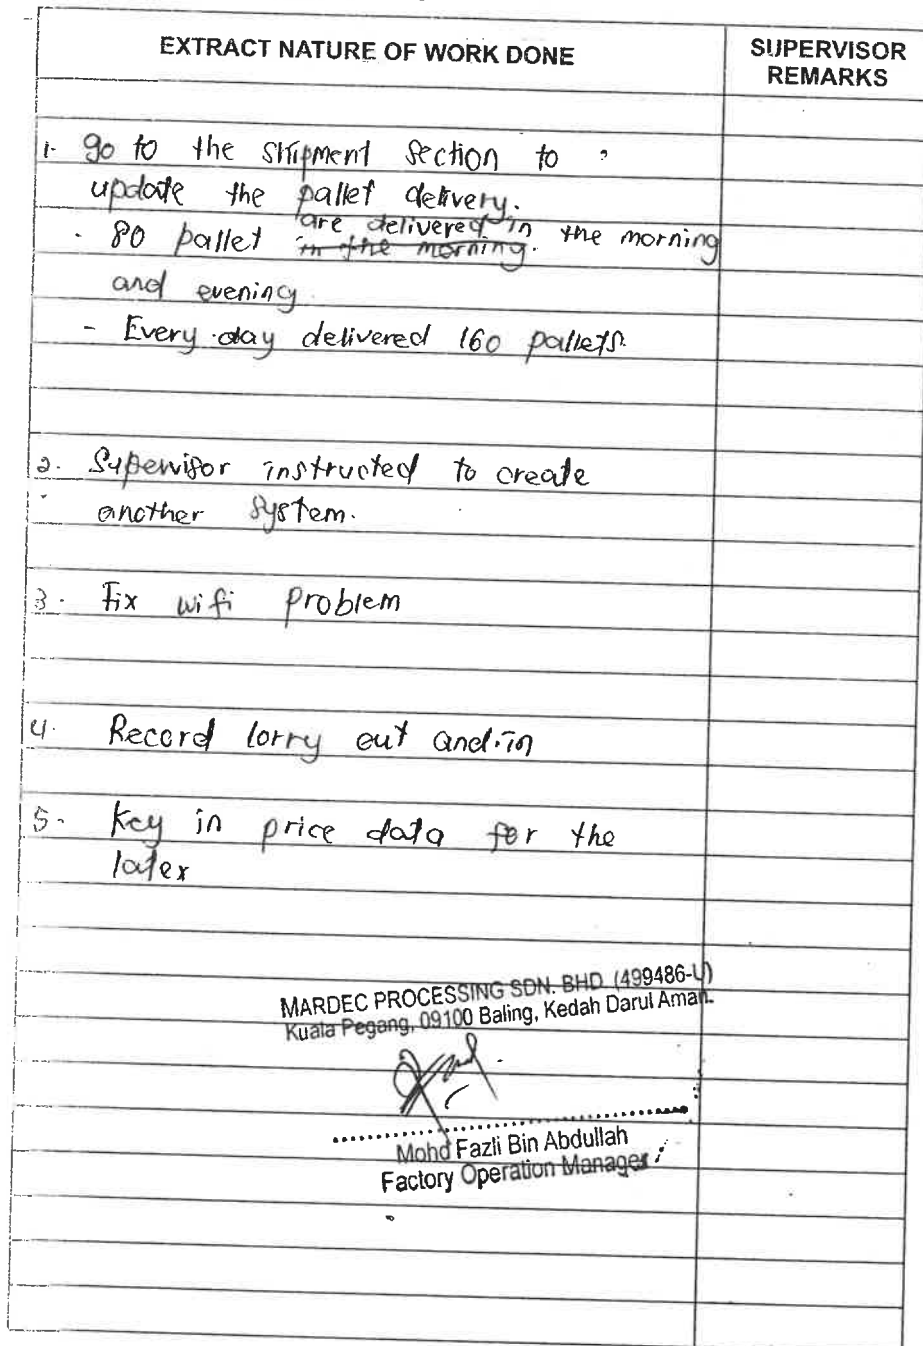 EXTRACT NATURE OF WORK DONE
SUPERVISOR
REMARKS
1. go to the shipment section to
update the pallet delivery.
- 80 pallet are delivered in the morning
in the morning.
and evening.
- Every day delivered 160 pallets.
2. Supervisor instructed to create
another system.
3. Fix wifi problem
4. Record lorry out and in
5. Key in price data for the
latex
MARDEC PROCESSING SDN. BHD. (499486-U)
Kuala Pegang, 09100 Baling, Kedah Darul Aman.
Mohd Fazli Bin Abdullah
Factory Operation Manager